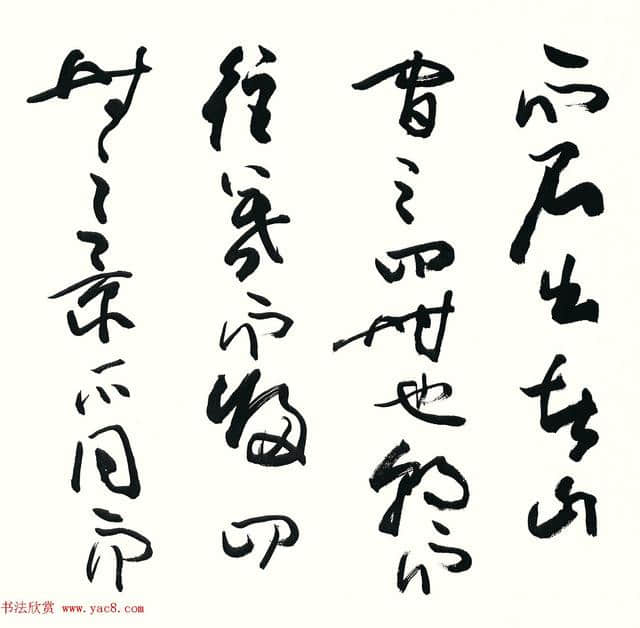 而石出者山
間之四時也朝而
往暮而歸四
時之景不同而
书法欣赏 www.yac8.com